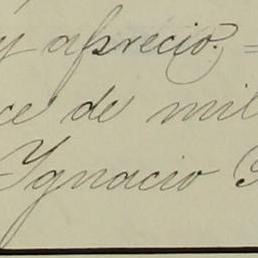 y aprecio. =
ce de mil
Ygnacio